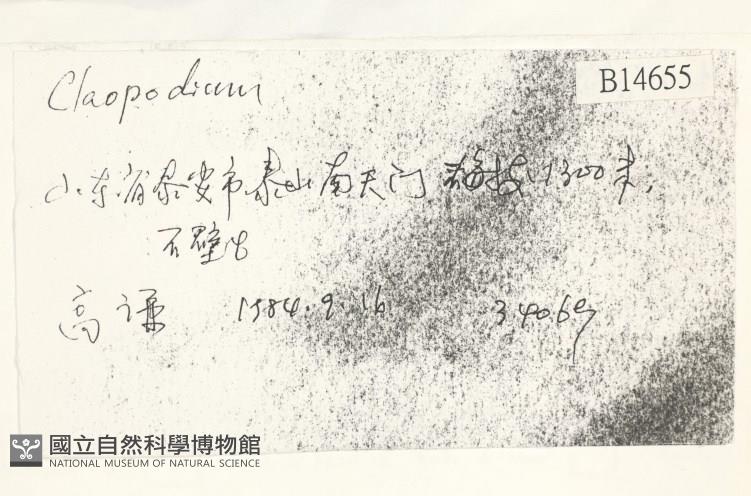 Claopodium
B14655
山东省泰安市泰山南天门 海拔1300米.
石壁生
高谦 1984.9.16 34069
國立自然科學博物館
NATIONAL MUSEUM OF NATURAL SCIENCE